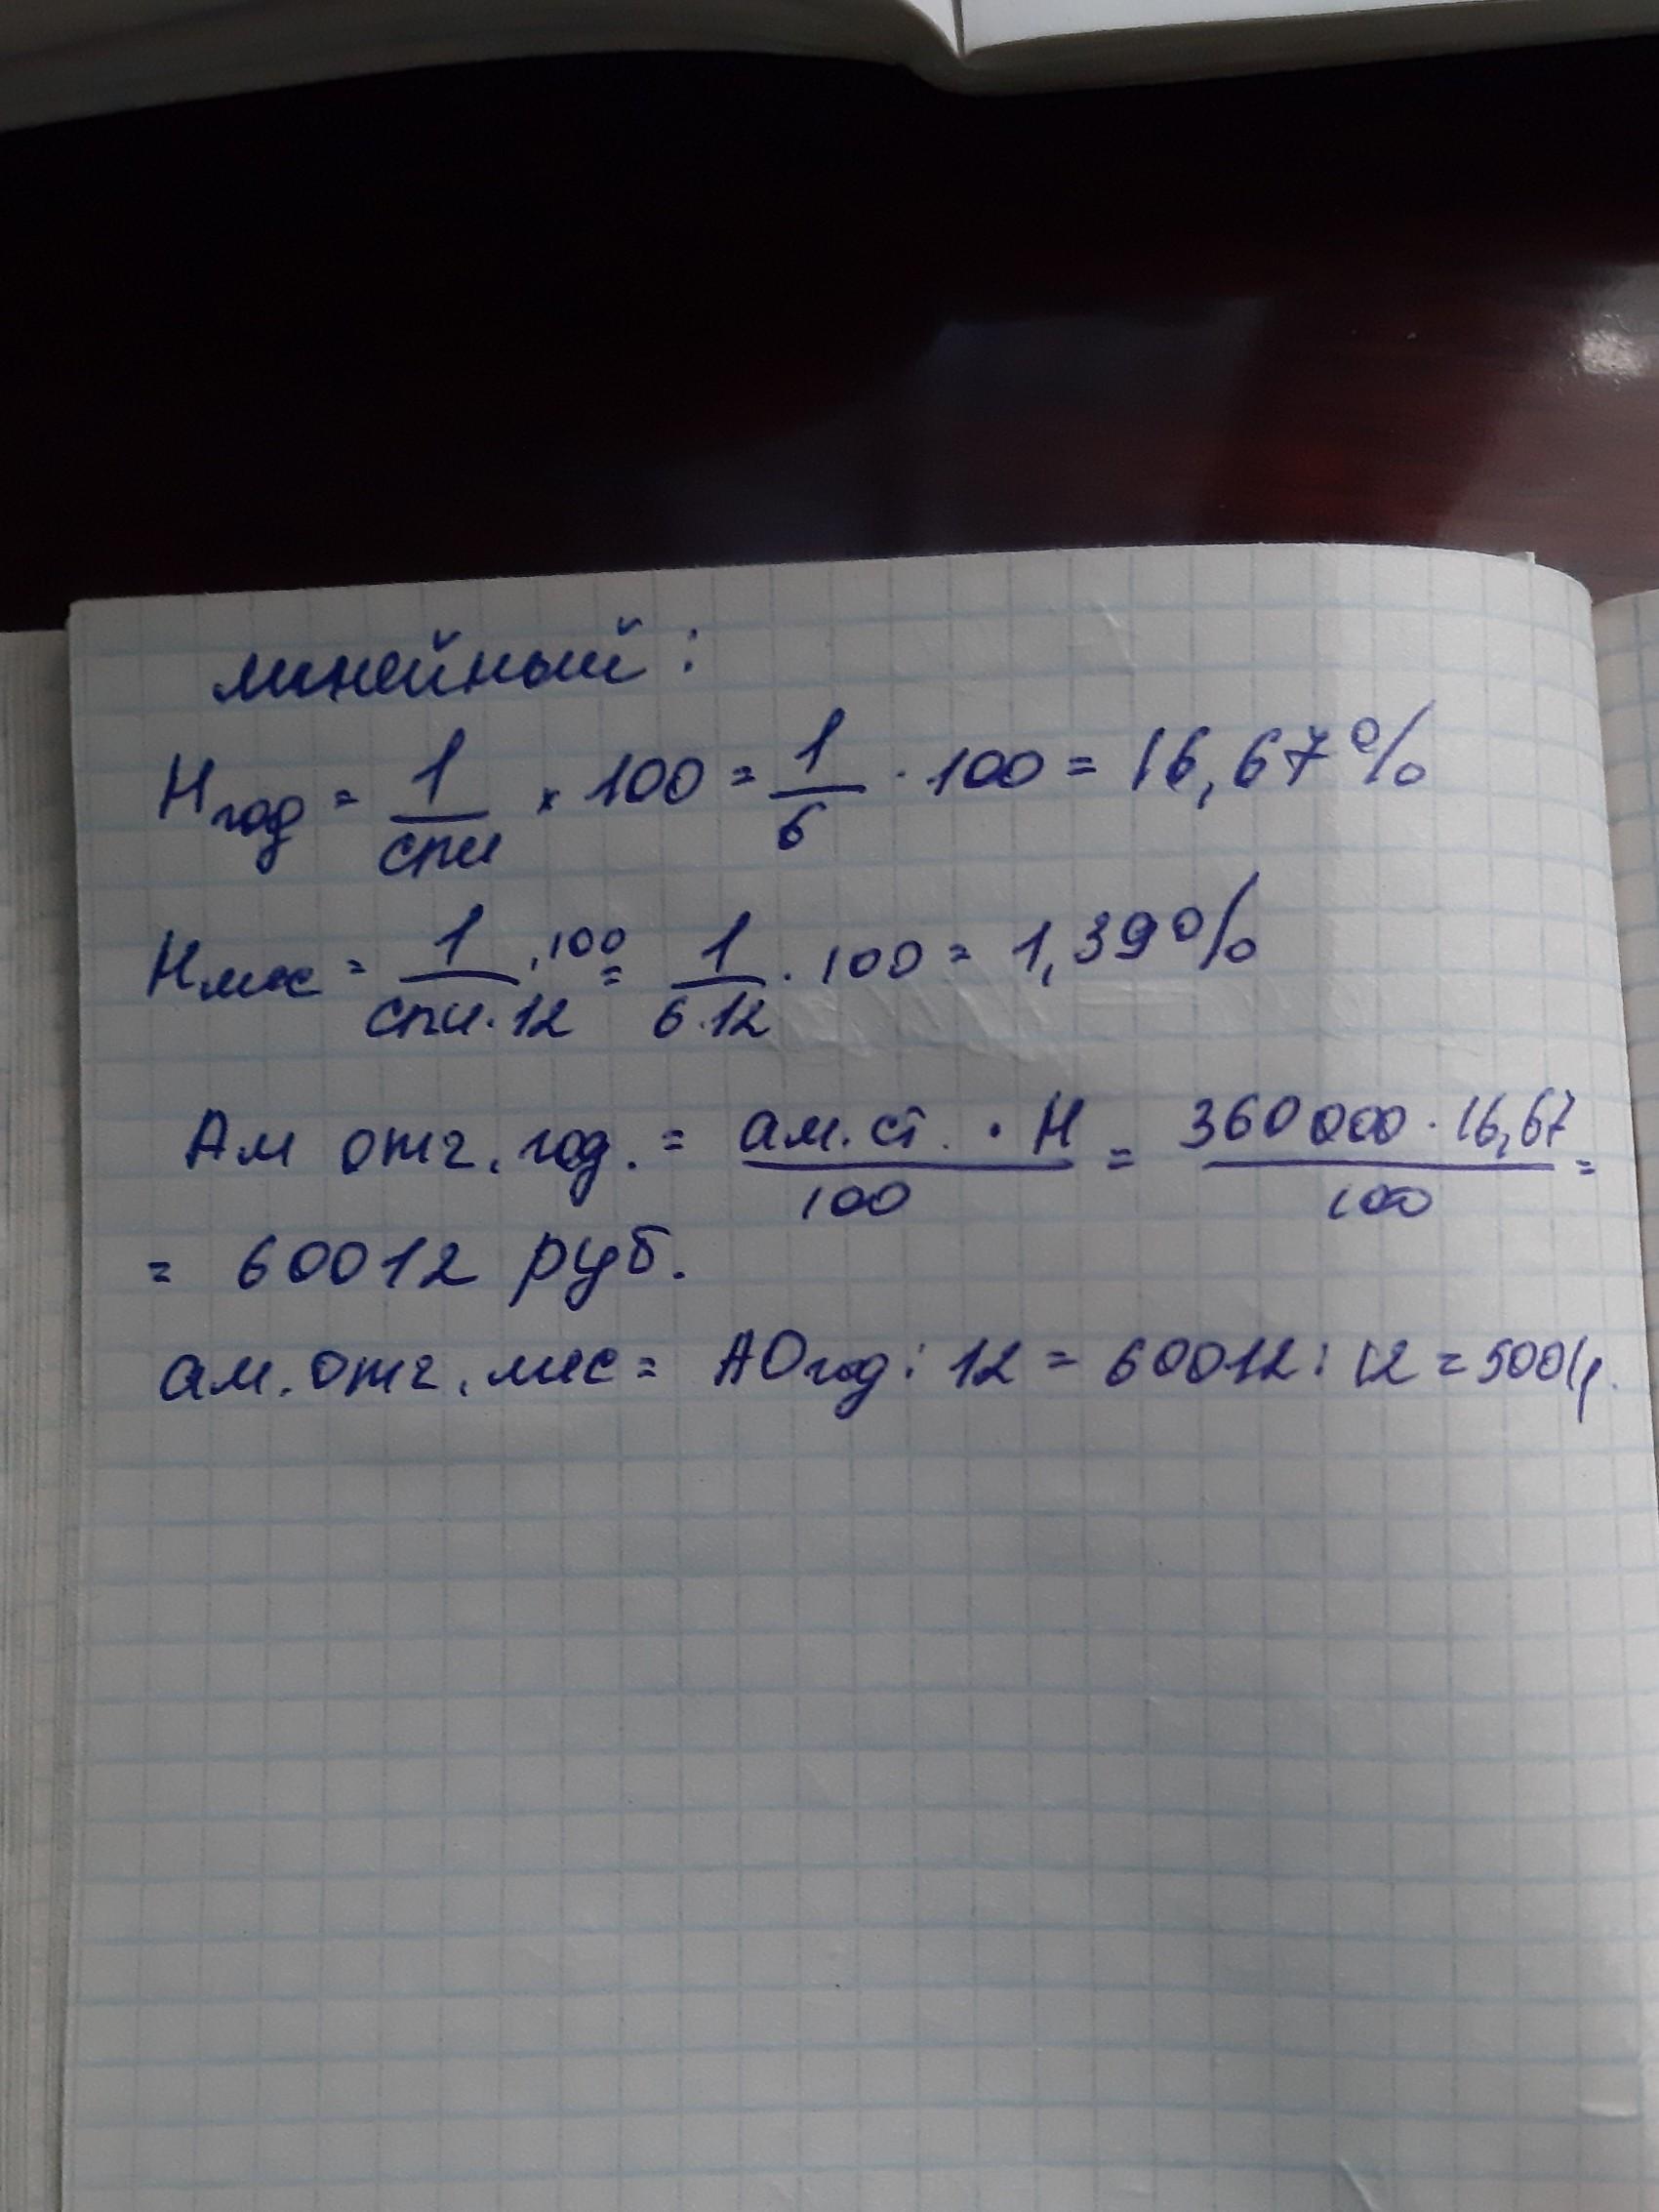 линейный:
Нгод = 1/спи × 100 = 1/6 · 100 = 16,67%
Нмес = 1/спи·12 · 100 = 1/6·12 · 100 = 1,39%
Ам отч. год. = ам. ст. · Н/100 = 360 000 · 16,67/100 =
= 60012 руб.
ам. отч. мес = АОгод : 12 = 60012 : 12 = 5001р.